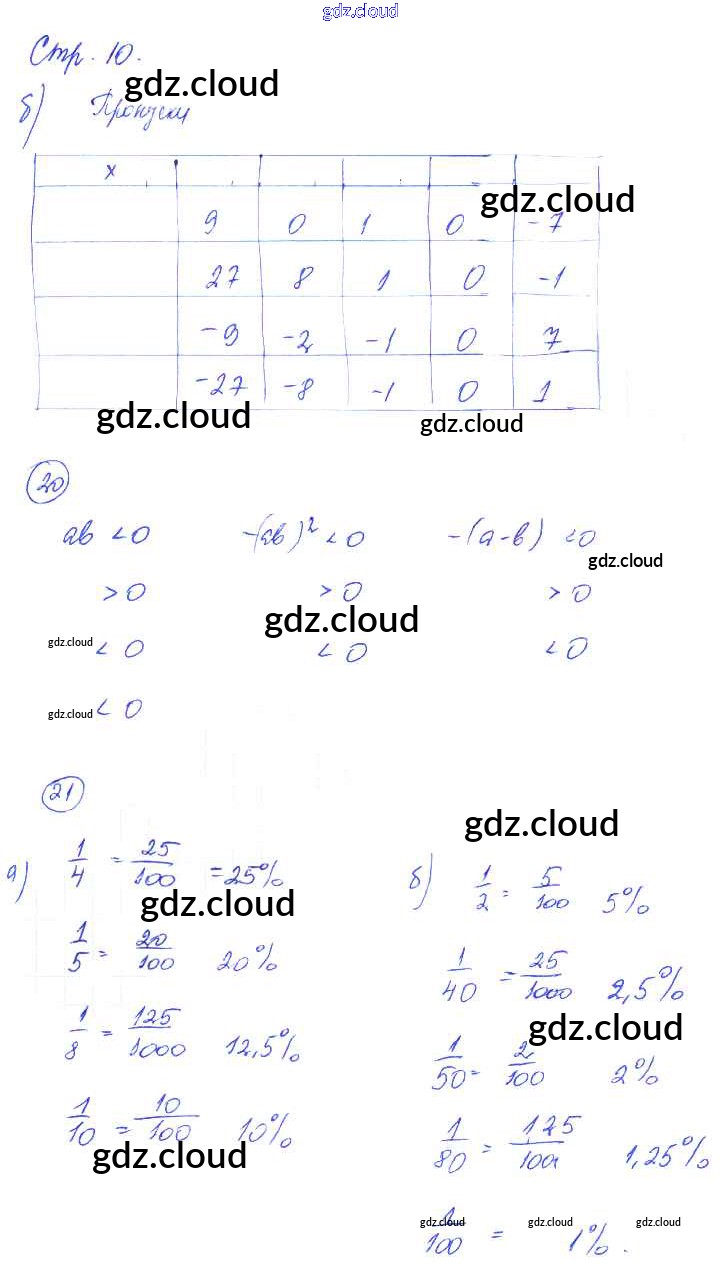 gdz.cloud
Стр. 10.
gdz.cloud
б) Пропуски
x
gdz.cloud
9 0 1 0 -7
27 8 1 0 -1
-9 -2 -1 0 7
-27 -8 -1 0 1
gdz.cloud gdz.cloud
20
ab <0 -(ab)² <0 -(a-b) <0
gdz.cloud
>0 >0 >0
gdz.cloud
gdz.cloud < 0 < 0 <0
gdz.cloud < 0
21
gdz.cloud
а) 1/4 = 25/100 = 25% б) 1/2 = 5/100 5%
gdz.cloud
1/5 = 20/100 20% 1/40 = 25/1000 2,5%
gdz.cloud
1/8 = 125/1000 12,5% 1/50 = 2/100 2%
1/10 = 10/100 10% 1/80 = 1,25/100 1,25%
gdz.cloud
gdz.cloud gdz.cloud gdz.cloud
1/100 = 1%.